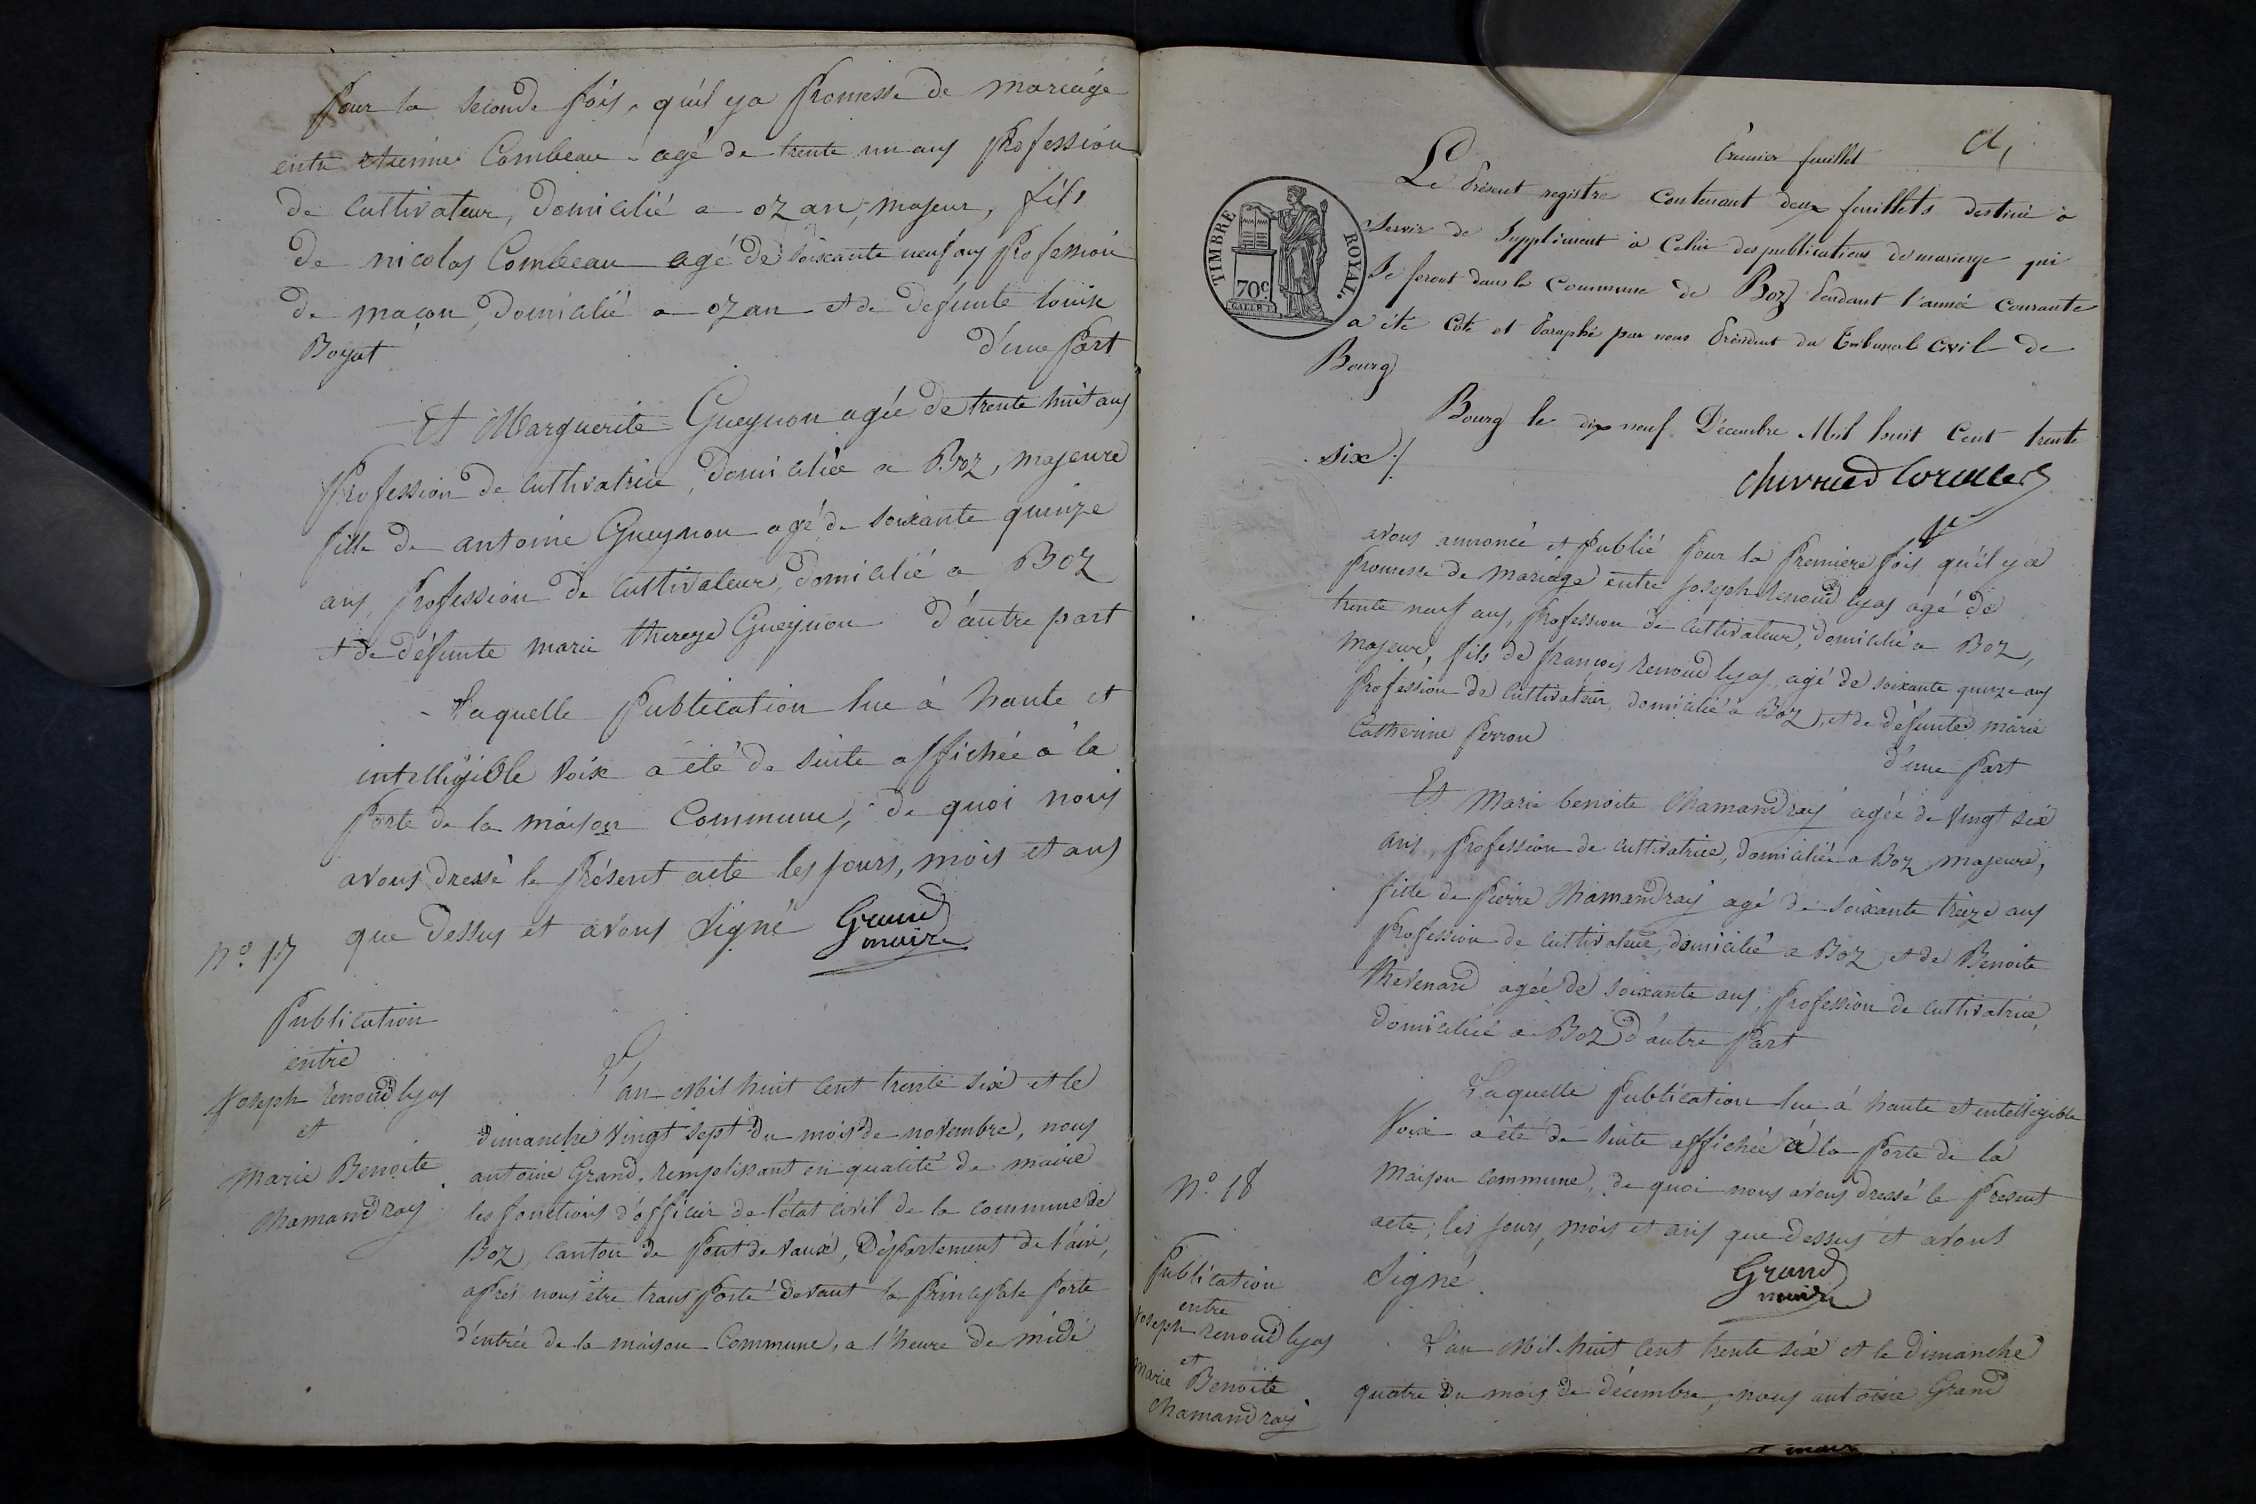 pour la seconde fois, qu'il y a promesse de mariage
entre etienne Combeau agé de trente un ans profession
de cultivateur, domicilié a ozan, majeur, fils
de nicolas Combeau agé de soixante neuf ans profession
de maçon, domicilié a ozan et de defunte louise
Boyat d'une part
Et Marguerite Gueynon agée de trente huit ans
profession de cultivatrice, domiciliée a Boz, majeure
fille de antoine Gueynon agé de soixante quinze
ans, profession de cultivateur, domicilié a Boz
et de défunte marie thereze Gueynon d'autre part
Laquelle publication lue à haute et
intelligible voix a été de suite affichée a la
porte de la maison commune, de quoi nous
avons dressé le présent acte les jours, mois et ans
que dessus et avons signé Grand
maire
N.º 17
Publication
entre
Joseph renoud lyas
et
Marie Benoite
Chamandray
L'an Mil huit cent trente six et le
dimanche vingt sept du mois de novembre, nous
antoine Grand, remplissant en qualité de maire
les fonctions d'officier de l'état civil de la commune de
Boz, canton de pont de vaux, Département de l'ain,
après nous être transporté devant la principale porte
d'entrée de la maison commune, a l'heure de midi
Premier feuillet
Le Présent registre contenant deux feuillets destiné à
Servir de Supplément à Celui des publications de mariage qui
Se feront dans la Commune de Boz Pendant l'année Courante
a été Coté et Paraphé par nous Président du Tribunal Civil de
Bourg
TIMBRE ROYAL.
70c
Bourg le dix neuf Décembre Mil huit Cent trente
six ./.
avons annoncé et publié pour la première fois qu'il y a
promesse de mariage entre Joseph renoud lyas agé de
trente neuf ans, profession de cultivateur, domicilié a Boz,
majeur, fils de françois renoud lyas, agé de soixante quinze ans
profession de cultivateur, domicilié a Boz, et de défunte marie
Catherine perron
d'une part
Et Marie benoite Chamandray agée de vingt six
ans, profession de cultivatrice, domiciliée a Boz, majeure,
fille de pierre Chamandray agé de soixante treize ans
profession de cultivateur, domicilié a Boz et de Benoite
thevenard agée de soixante ans, profession de cultivatrice,
domiciliée a Boz d'autre part
Laquelle publication lue à haute et intelligible
voix a été de suite affichée à la porte de la
maison commune, de quoi nous avons dressé le present
acte, les jours, mois et ans que dessus et avons
signé. Grand
maire
N.º 18
Publication
entre
Joseph renoud lyas
et
Marie Benoite
Chamandray
L'an Mil huit cent trente six et le dimanche
quatre du mois de décembre, nous antoine Grand